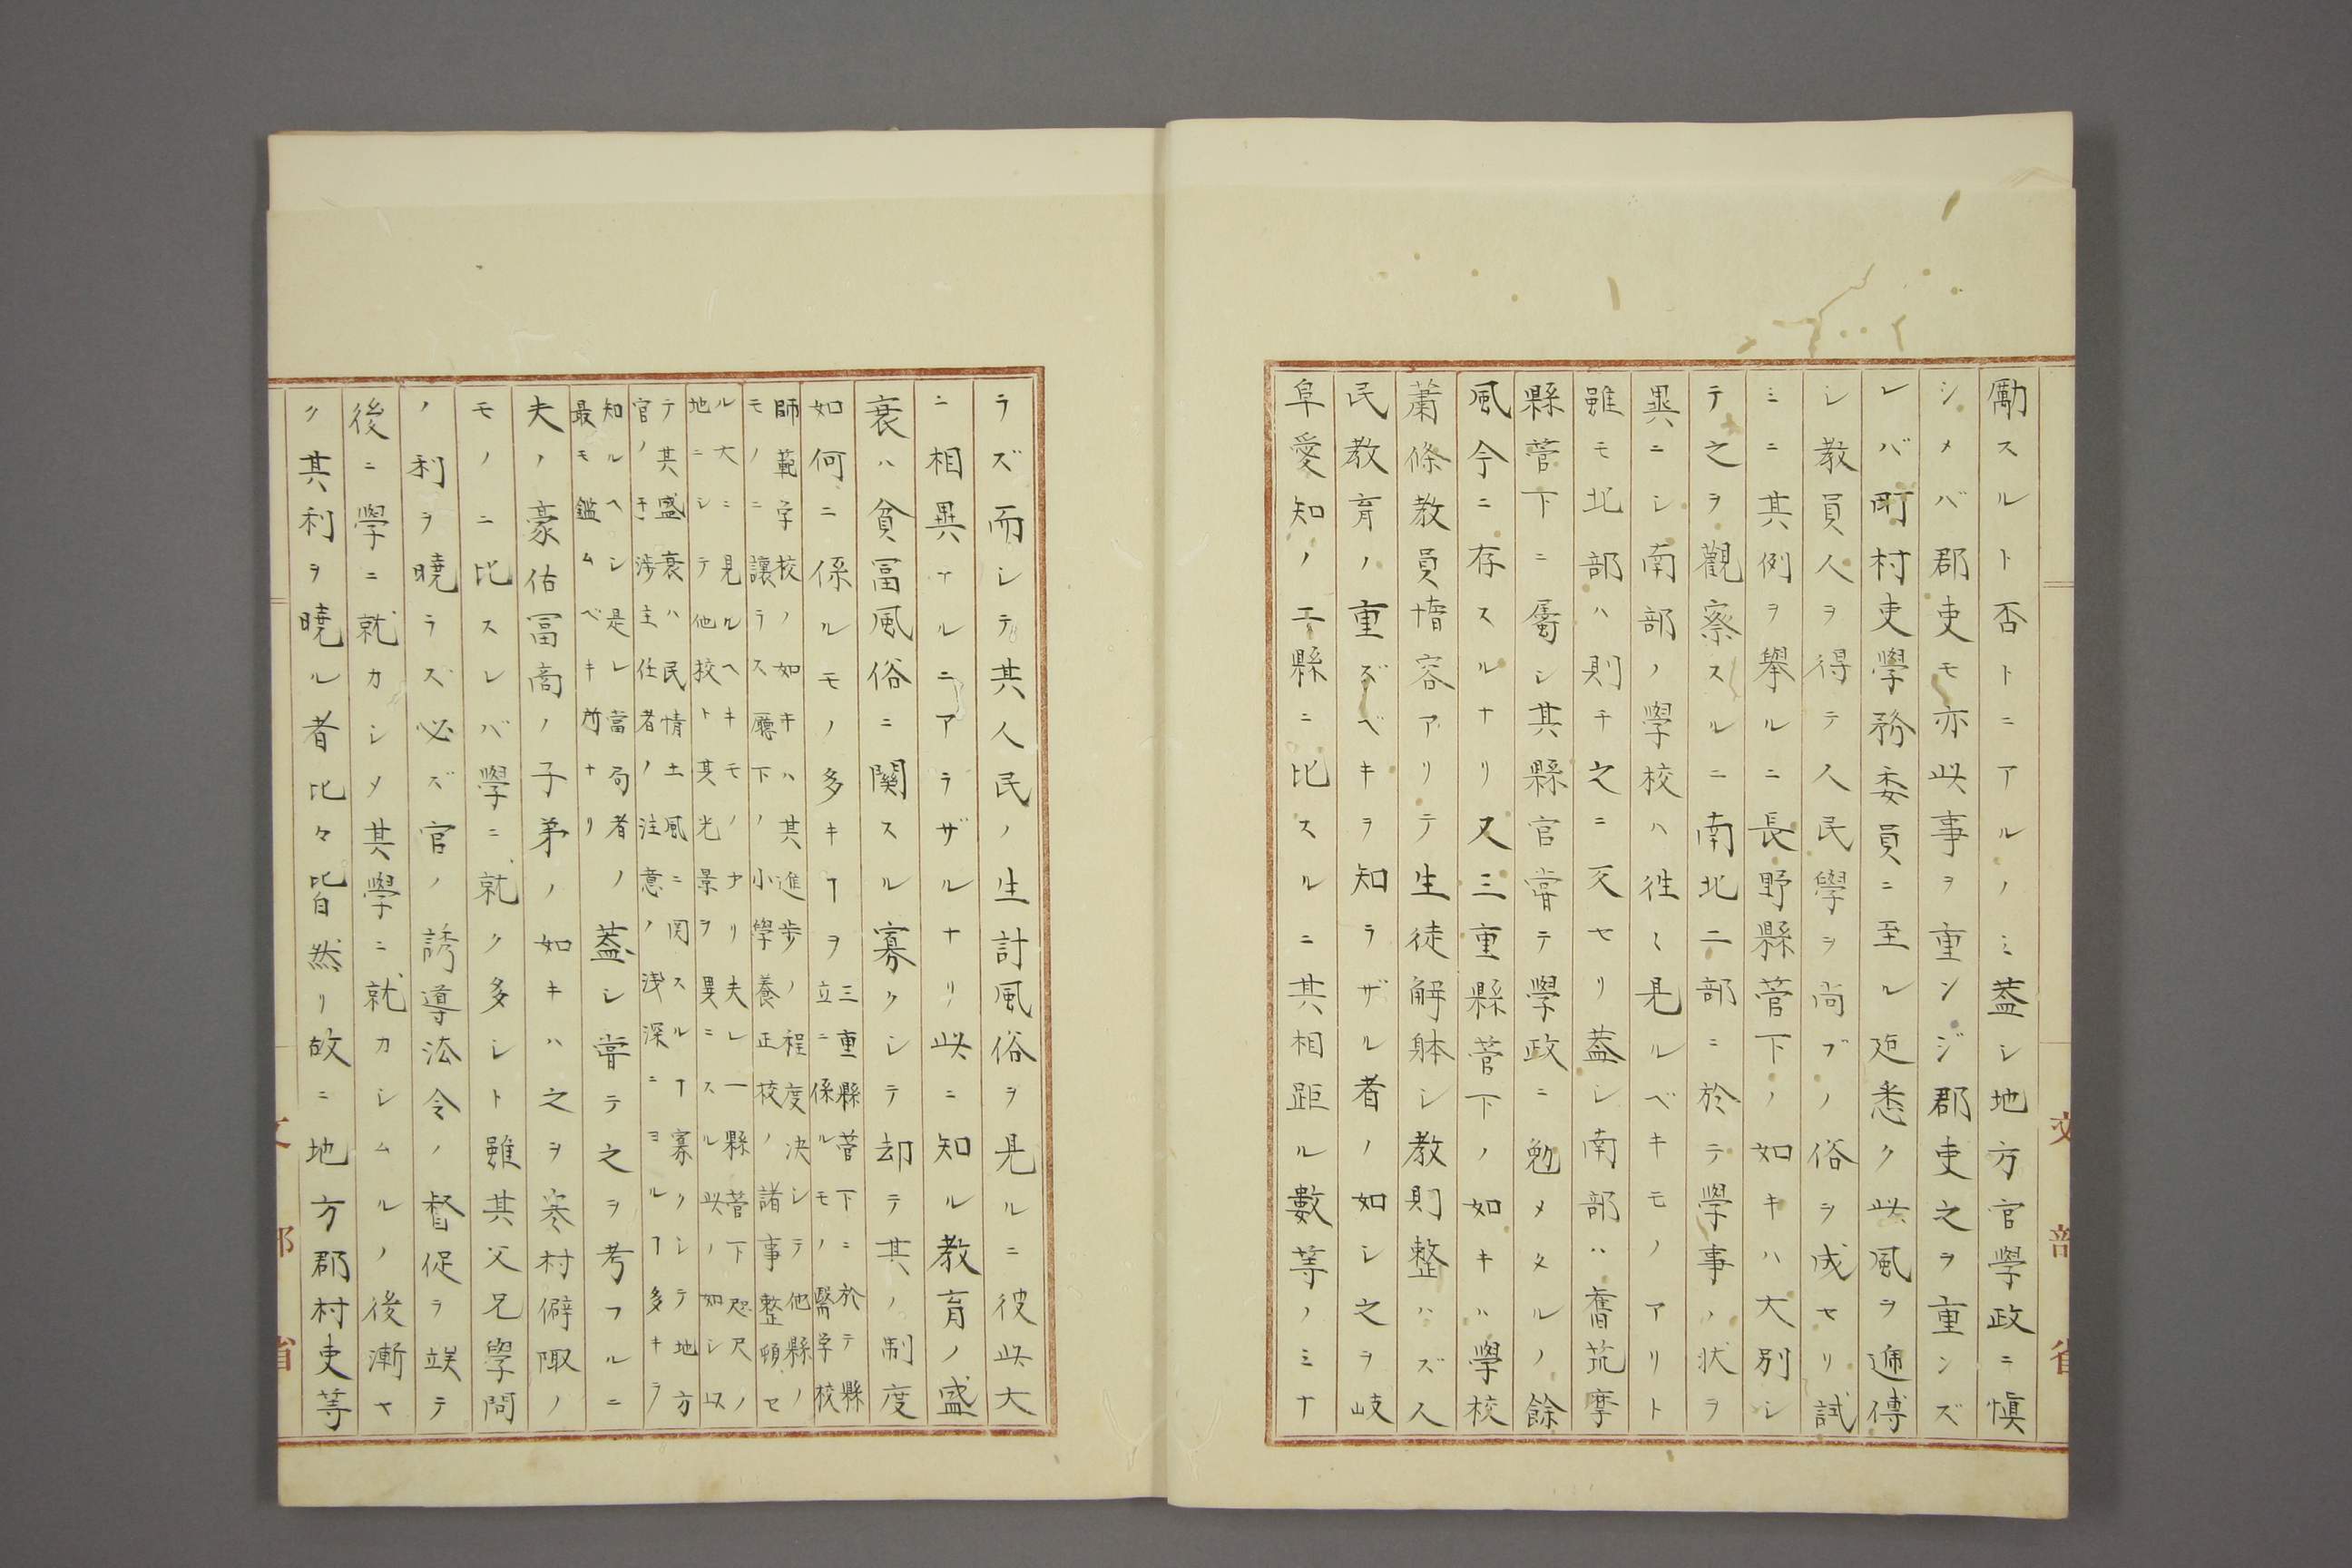 勵スルト否トニアルノミ蓋シ地方官學政ニ愼
シメバ郡吏モ亦此事ヲ重ンジ郡吏之ヲ重ンズ
レバ町村吏學務委員ニ至ル迠悉ク此風ヲ逓傳
シ教員人ヲ得テ人民學ヲ尚ブノ俗ヲ成セリ試
ミニ其例ヲ擧ルニ長野縣菅下ノ如キハ大別シ
テ之ヲ觀察スルニ南北二部ニ於テ學事ノ状ヲ
異ニシ南部ノ學校ハ徃〻見ルベキモノアリト
雖モ北部ハ則チ之ニ反セリ蓋シ南部ハ舊筑摩
縣菅下ニ屬シ其縣官甞テ學政ニ勉メタルノ餘
風今ニ存スルナリ又三重縣菅下ノ如キハ學校
蕭條教員惰容アリテ生徒解躰シ教則整ハズ人
民教育ノ重ズベキヲ知ラザル者ノ如シ之ヲ岐
阜愛知ノ二縣ニ比スルニ其相距ル數等ノミナ
文部省
ラズ而シテ其人民ノ生計風俗ヲ見ルニ彼此大
ニ相異ナルニアラザルナリ此ニ知ル教育ノ盛
衰ハ貧冨風俗ニ関スル寡クシテ却テ其ノ制度
如何ニ係ルモノ多キヿヲ
三重縣菅下ニ於テ縣
立ニ係ルモノ醫学校
師範学校ノ如キハ其進歩ノ程度决シテ他縣ノ
モノニ讓ラス廳下ノ小學養正校ノ諸事整頓セ
ル大ニ見ルヘキモノアリ夫レ一縣菅下咫尺ノ
地ニシテ他校ト其光景ヲ異ニスル此ノ如シ以
テ其盛衰ハ民情土風ニ関スルヿ寡クシテ地方
官ノ干渉主任者ノ注意ノ浅深ニヨルヿ多キヲ
知ルヘシ是レ當局者ノ
最モ鑑ムベキ所ナリ
蓋シ甞テ之ヲ考フルニ
夫ノ豪估冨商ノ子弟ノ如キハ之ヲ寒村僻陬ノ
モノニ比スレバ學ニ就ク多シト雖其父兄學問
ノ利ヲ曉ラズ必ズ官ノ誘導法令ノ督促ヲ竢テ
後ニ學ニ就カシメ其學ニ就カシムルノ後漸ヤ
ク其利ヲ曉ル者比々皆然リ故ニ地方郡村吏等
文部省